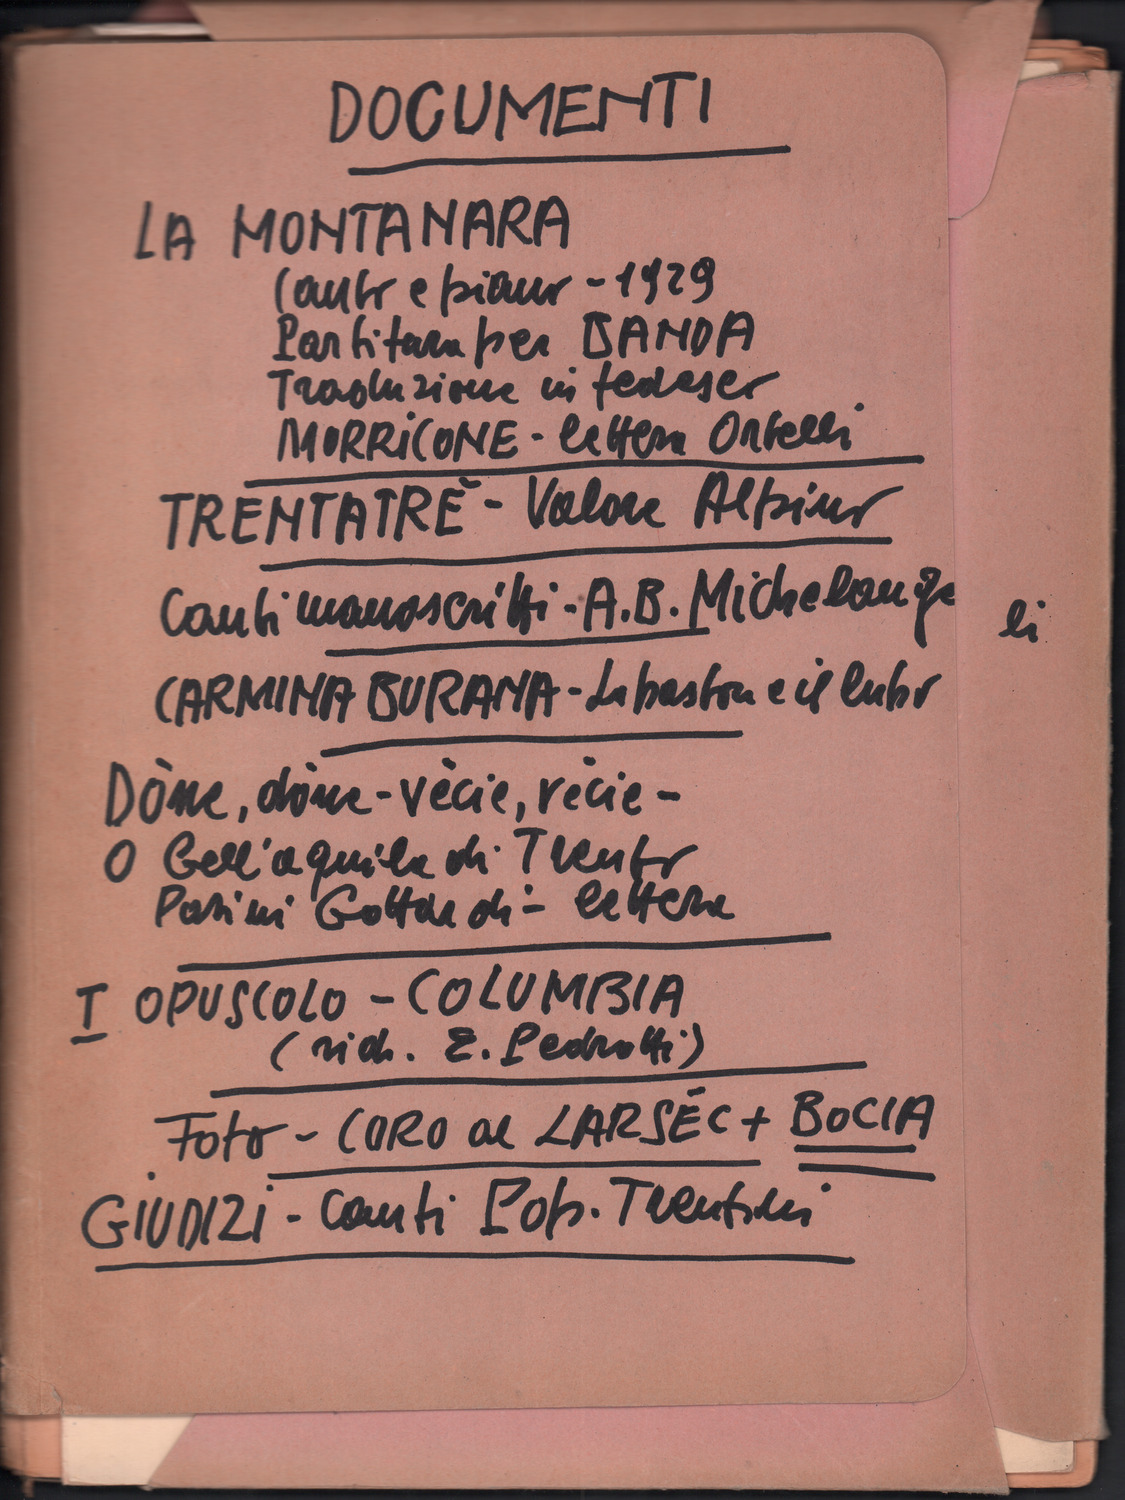 DOCUMENTI
LA MONTANARA
Canto e piano - 1929
Partitura per BANDA
Traduzione in tedesco
MORRICONE - lettera Ortelli
TRENTATRÈ - Valore Alpino
Canti manoscritti - A.B. Michelangeli
CARMINA BURANA - La bastona e il lubo
Dòne, dòne - vècie, vècie -
O Bell'aquila di Trento
Pasini Gottardi - lettera
I OPUSCOLO - COLUMBIA
(rich. E. Pedrotti)
Foto - CORO al LARSÉC + BOCIA
GIUDIZI - Canti Pop. Trentini